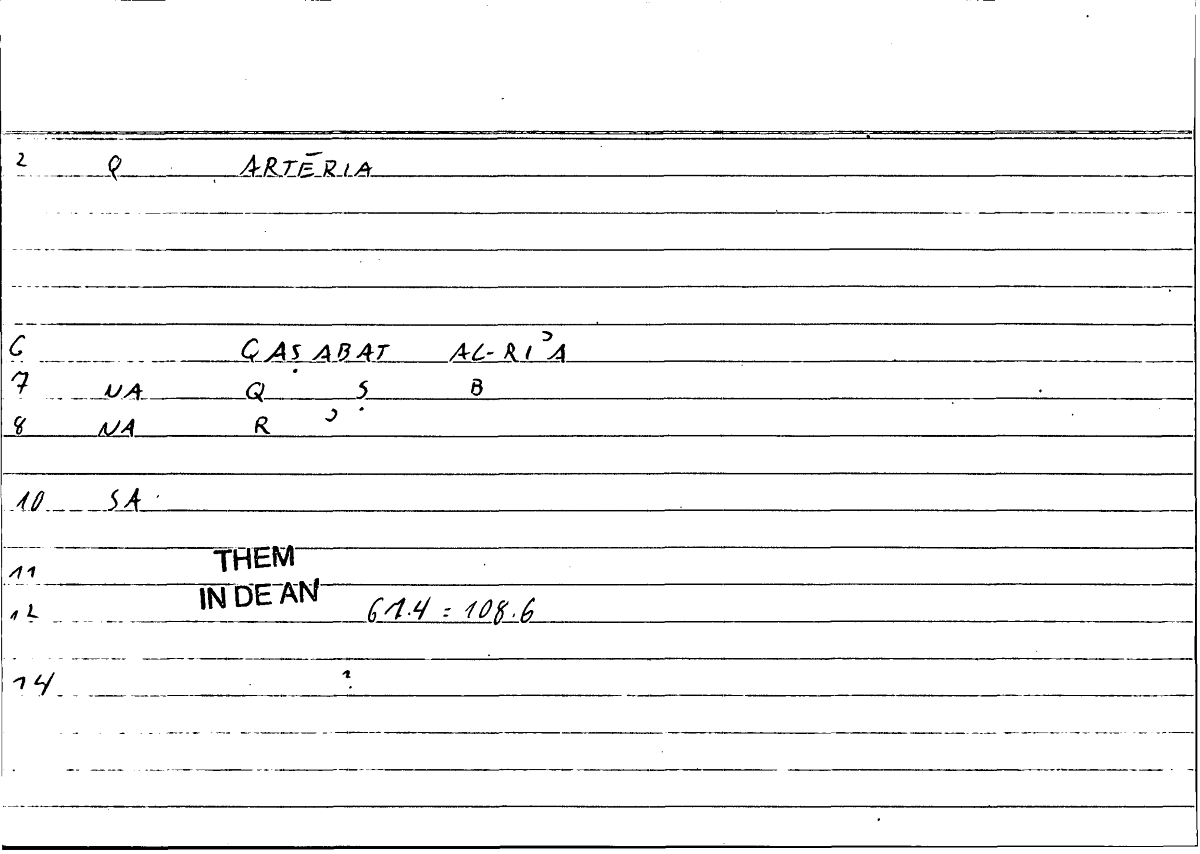 2 Q ARTĒRIA
6 QAṢABAT AL-RIʾA
7 NA Q Ṣ B
8 NA R ʾ
10 SA
11 THEM
IN DE AN
12 61.4 = 108.6
14